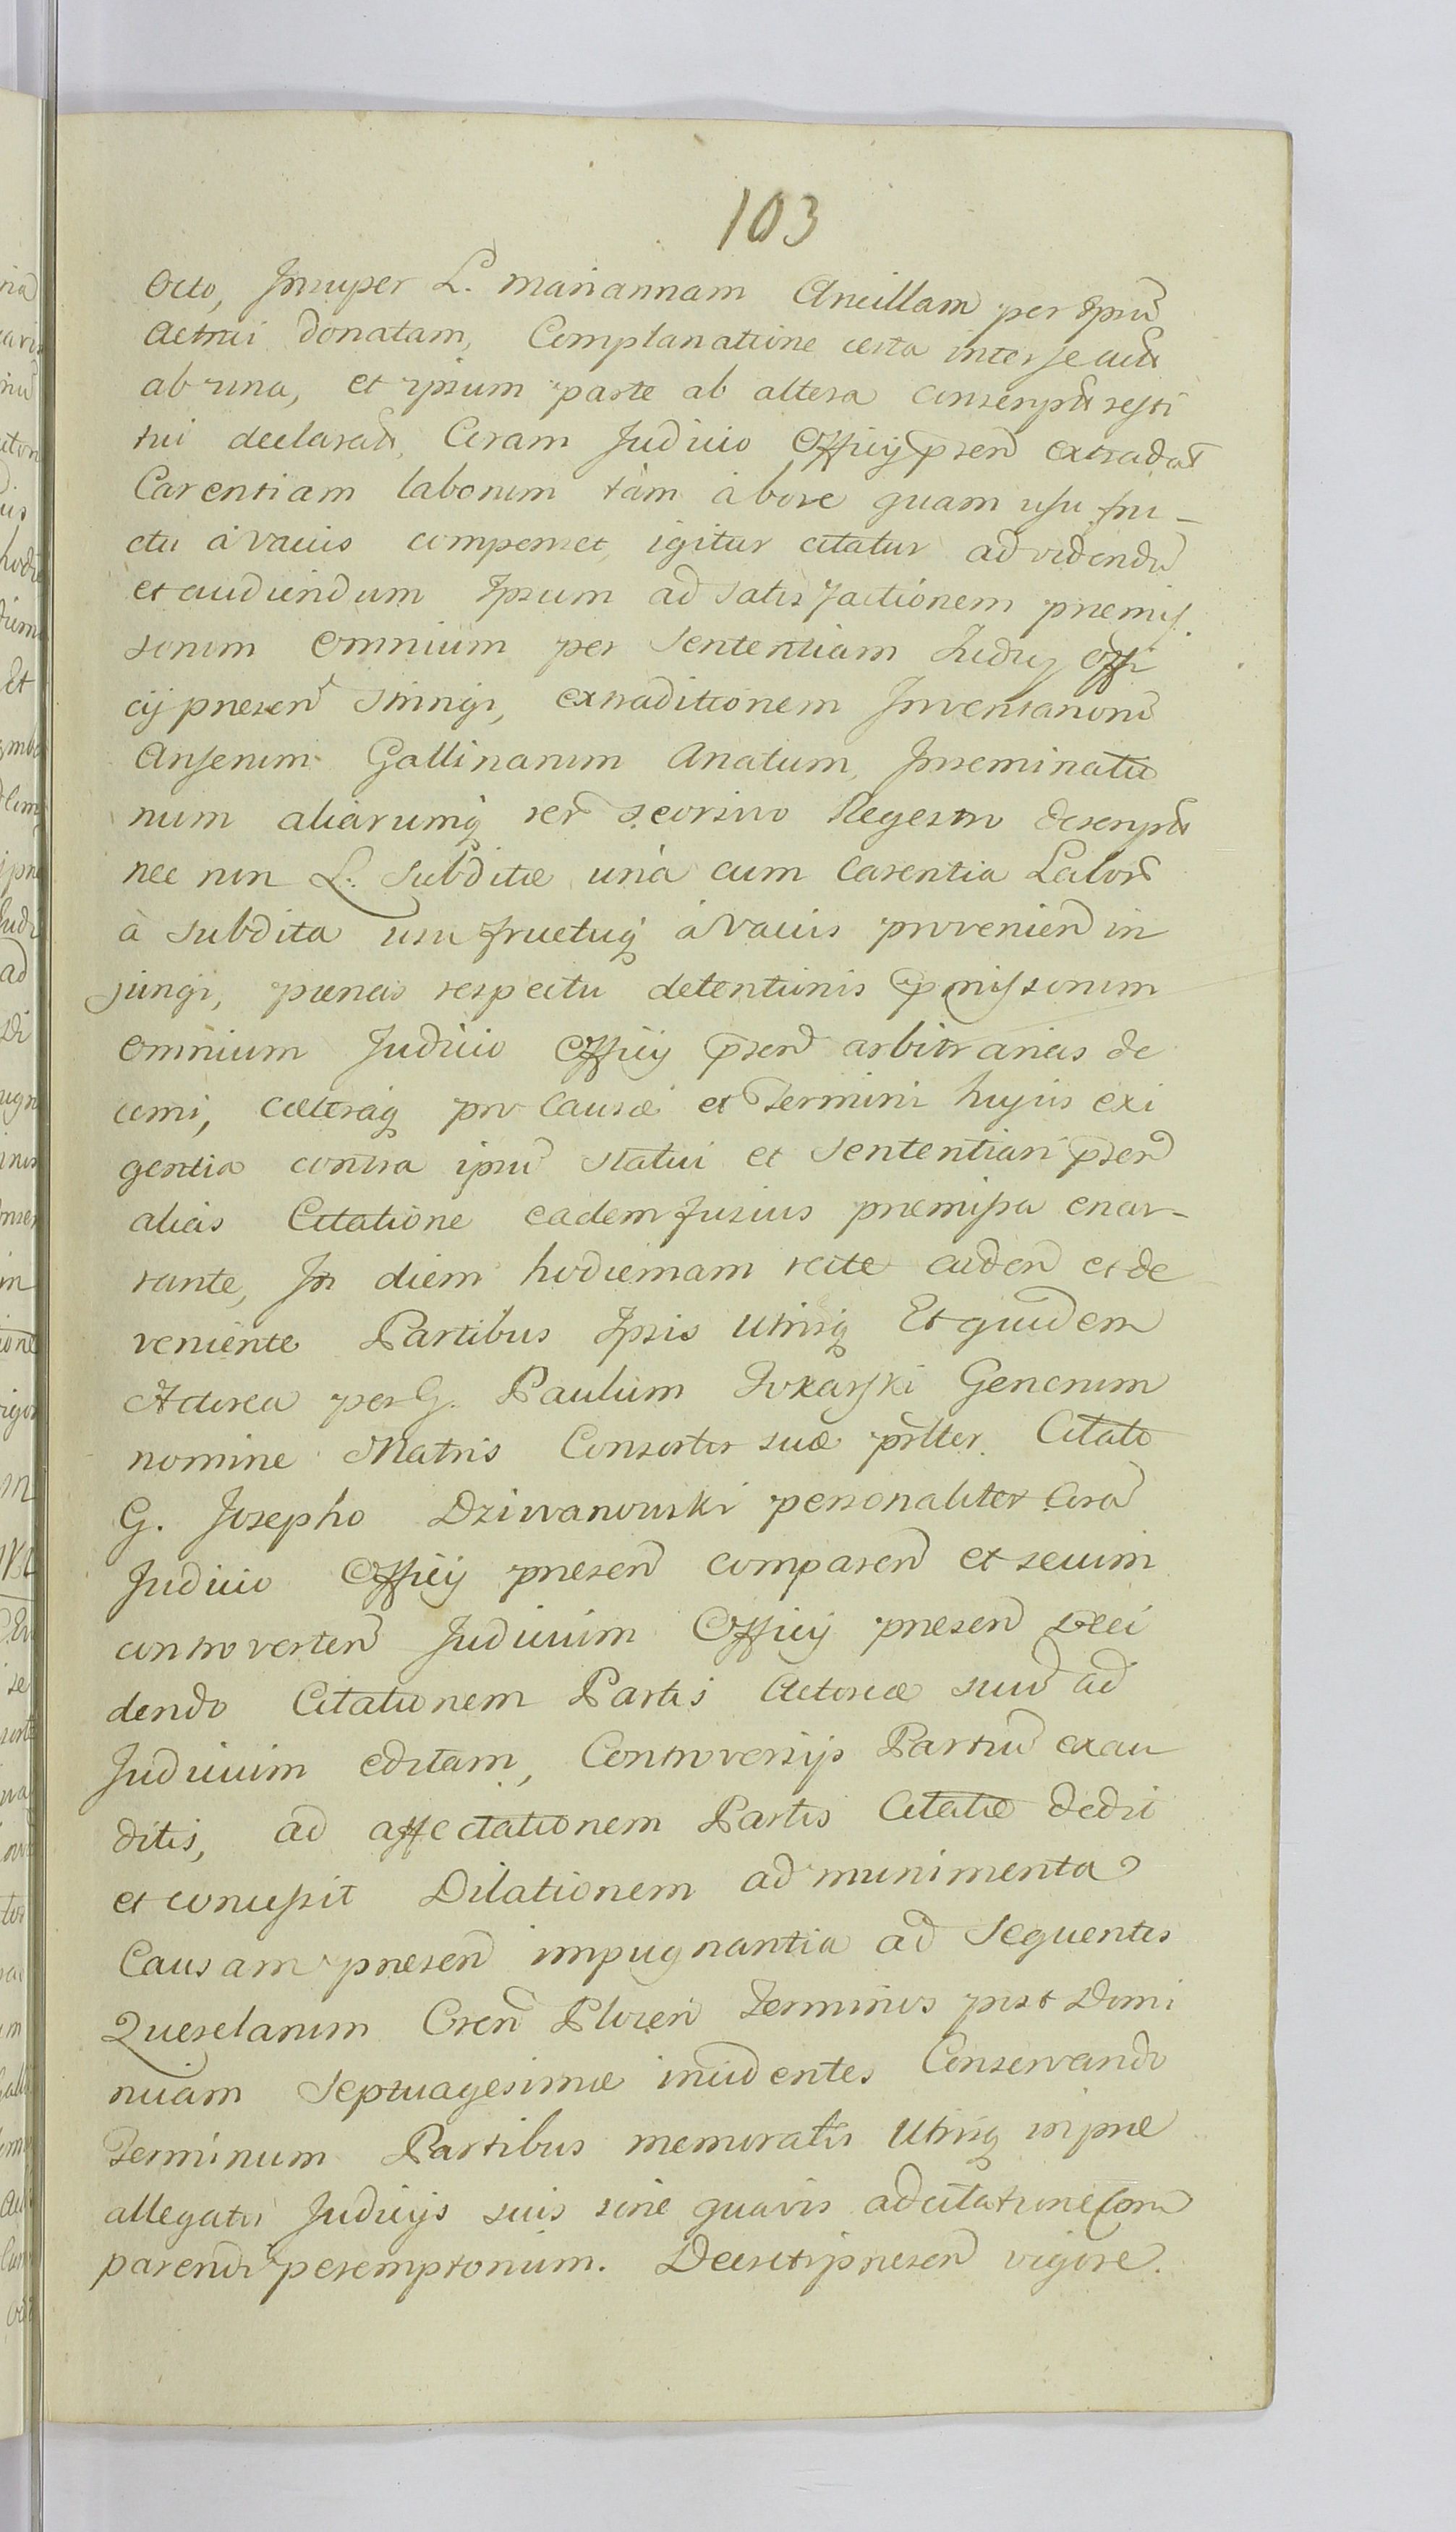 103
Octo, Insuper L. Mariannam Ancillam per Ipsũ
Actrici donatam, Complanatione certa inter se acta
ab una, et ipsum parte ab altera conscripta resti
tui declarata, Coram Judicio Officij p̃sen̄ extradat
Carentiam laborum tàm à bove quam usu fru-
ctu à vaccis compenset, igitur citatur ad videndũ
et audiendum Ipsum ad satisfactionem præmis
sorum omnium per Sententiam Judicij Offi
cij præsen̄ stringi, extraditionem Inventariorũ
Anserum Gallinarum Anatum, Inseminatio
num aliarumq̃ rer̃ seorsivo Regestro descripta
nec non L. Subditæ unà cum Carentia Labor̃
à Subdita usu fructuq̃ à vaccis provenien̄ in
jungi, pœnas respectu detentionis p̃missorum
omnium Judicio Officij p̃sen̄ arbitrarias de
cerni, cæteraq̃ pro Causæ et Termini hujus exi
gentia contra ipsũ statui et Sententiari p̃sen̄
alias Citatione eadem fusius præmissa enar-
rante, In diem hodiernam recte caden̄ et de
veniente Partibus Ipsis Utrisq̃ Et quidem
Actorea per G. Paulum Generum
nomine Matris Consortis suæ p̃ltter. Citato
G. Josepho Dziwanowski personaliter Corã
Judicio Officij præsen̄ comparen̄ et secum
controverten̄ Judicium Officij præsen̄ Deci
dendo Citationem Partis Actoreæ suũ ad
Judicium editam, Controversijs Partiũ exau
ditis, ad affectationem Partis Citatæ dedit
et concessit Dilationem ad munimenta
Causam præsen̄ impugnantia ad Sequentes
Querelarum Cren̄ Plocen̄ Terminos post Domi
nicam Septuagesimæ incidentes Conservando
Terminum Partibus memoratis Utrisq̃ in præ
allegatis Judicijs suis sine quavis adcitatione Com
parendi peremptorium. Decreti præsen̄ vigore.